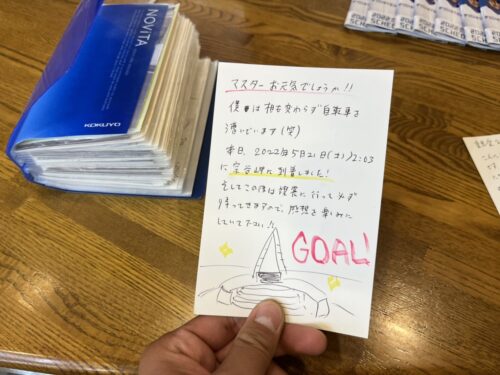 NOVITA
KOKUYO
マスターお元気でしょうか!!
僕は相も変わらず自転車を
漕いでいます(笑)
本日、2022年5月21日(土)12:03
に宗谷岬に到着しました!
そしてこの後は
に行って必ず
帰ってきますので、感想を楽しみに
していて下さい!!
GOAL!